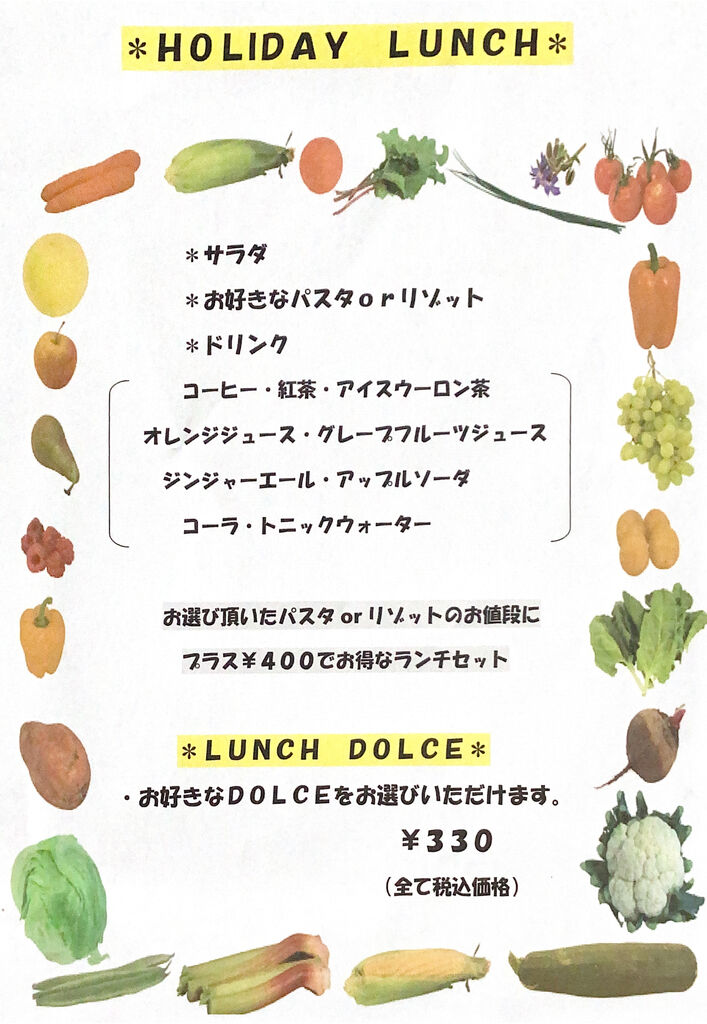 ＊HOLIDAY LUNCH＊
＊サラダ
＊お好きなパスタｏｒリゾット
＊ドリンク
コーヒー・紅茶・アイスウーロン茶
オレンジジュース・グレープフルーツジュース
ジンジャーエール・アップルソーダ
コーラ・トニックウォーター
お選び頂いたパスタ or リゾットのお値段に
プラス￥４００でお得なランチセット
＊LUNCH DOLCE＊
・お好きなＤＯＬＣＥをお選びいただけます。
￥３３０
（全て税込価格）